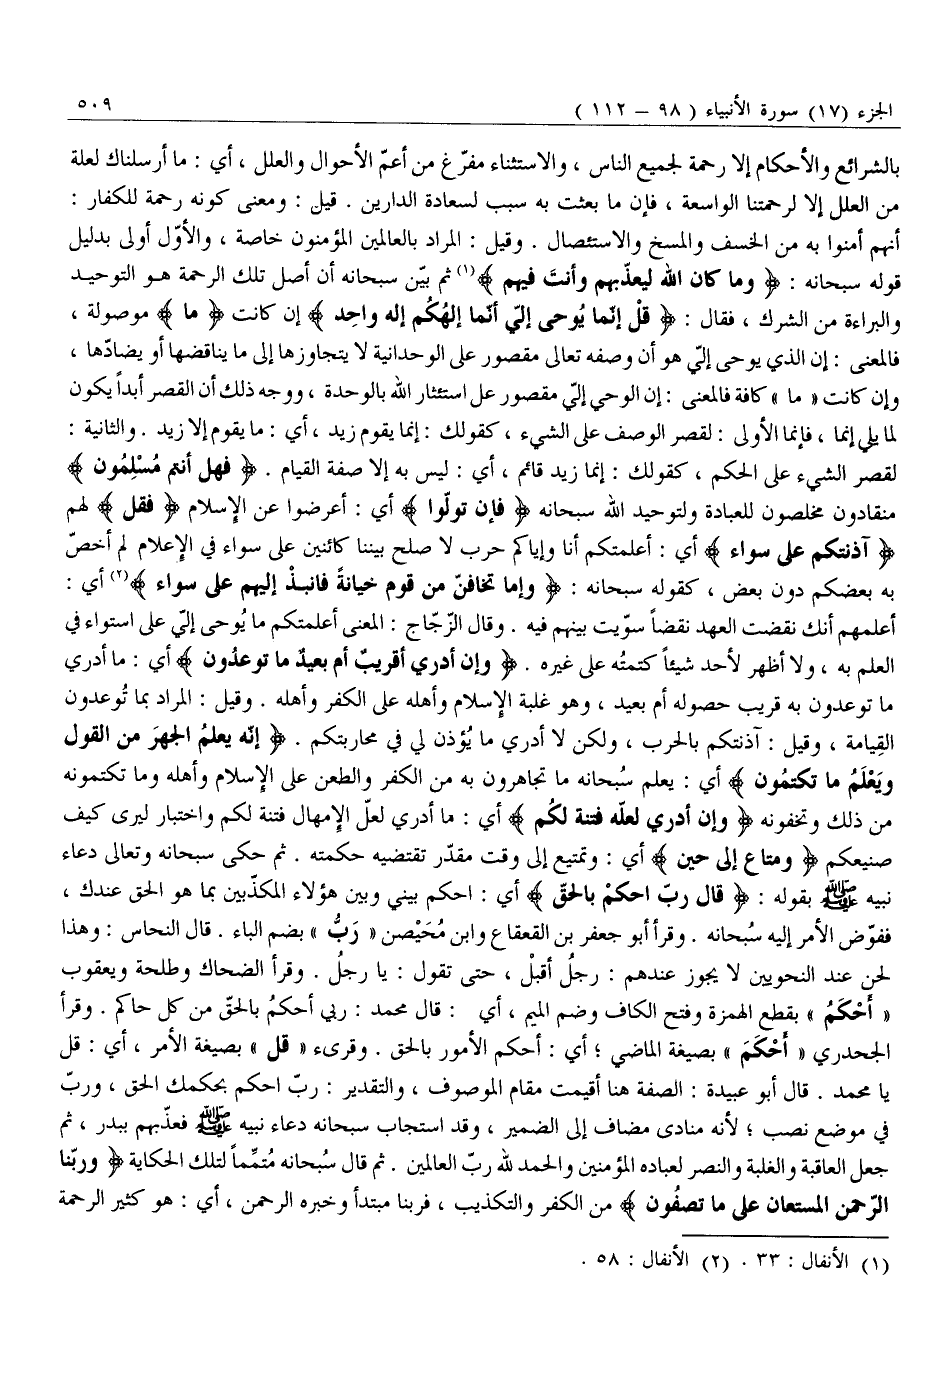 الجزء (١٧) سورة الأنبياء ( ٩٨ – ١١٢ )
٥٠٩
بالشرائع والأحكام إلا رحمة لجميع الناس ، والاستثناء مفرّغ من أعمّ الأحوال والعلل ، أي : ما أرسلناك لعلة
من العلل إلا لرحمتنا الواسعة ، فإن ما بعثت به سبب لسعادة الدارين . قيل : ومعنى كونه رحمة للكفار :
أنهم أمنوا به من الخسف والمسخ والاستئصال . وقيل : المراد بالعالمين المؤمنون خاصة ، والأوّل أولى بدليل
قوله سبحانه : ﴿ وما كان الله ليعذّبهم وأنتَ فيهم ﴾(١) ثم بيّن سبحانه أن أصل تلك الرحمة هـو التوحيـد
والبراءة من الشرك ، فقال : ﴿ قلْ إنّما يُوحى إليّ أنّما إلهُكُم إله واحِد ﴾ إن كانت ﴿ ما ﴾ موصولة ،
فالمعنى : إن الذي يوحى إليّ هو أن وصفه تعالى مقصور على الوحدانية لا يتجاوزها إلى ما يناقضها أو يضادّها ،
وإن كانت « ما » كافة فالمعنى : إن الوحي إليّ مقصور على استئثار الله بالوحدة ، ووجه ذلك أن القصر أبداً يكون
لما يلي إنما ، فإنما الأولى : لقصر الوصف على الشيء ، كقولك : إنما يقوم زيد ، أي : ما يقوم إلا زيد . والثانية :
لقصر الشيء على الحكم ، كقولك : إنما زيد قائم ، أي : ليس به إلا صفة القيام . ﴿ فهل أنتم مُسْلِمُون ﴾
منقادون مخلصون للعبادة ولتوحيد الله سبحانه ﴿ فإن تولّوا ﴾ أي : أعرضوا عن الإسلام ﴿ فقل ﴾ لهم
﴿ آذنتكم على سواء ﴾ أي : أعلمتكم أنا وإياكم حرب لا صلح بيننا كائنين على سواء في الإعلام لم أخصّ
به بعضكم دون بعض ، كقوله سبحانه : ﴿ وإما تخافنّ من قوم خيانةً فانبـذْ إليهم على سواء ﴾(٢) أي :
أعلمهم أنك نقضت العهد نقضاً سوّيت بينهم فيه . وقال الزّجّاج : المعنى أعلمتكم ما يُوحى إليّ على استواء في
العلم به ، ولا أظهر لأحد شيئاً كتمتُه على غيره . ﴿ وإن أدري أقريبٌ أم بعيدٌ ما توعدُون ﴾ أي : ما أدري
ما توعدون به قريب حصوله أم بعيد ، وهو غلبة الإسلام وأهله على الكفر وأهله . وقيل : المراد بما تُوعدون
القِيامة ، وقيل : آذنتكم بالحرب ، ولكن لا أدري ما يُؤذن لي في محاربتكم . ﴿ إنّه يعلمُ الجهرَ من القول
ويَعْلَمُ ما تكتمُون ﴾ أي : يعلم سُبحانه ما تجاهرون به من الكفر والطعن على الإسلام وأهله وما تكتمونه
من ذلك وتخفونه ﴿ وإن أدري لعلّه فتنة لكُم ﴾ أي : ما أدري لعلّ الإمهال فتنة لكم واختبار ليرى كيف
صنيعكم ﴿ ومتاع إلى حين ﴾ أي : وتمتيع إلى وقت مقدّر تقتضيه حكمته . ثم حكى سبحانه وتعالى دعاء
نبيه ﷺ بقوله : ﴿ قال ربّ احكمْ بالحقّ ﴾ أي : احكم بيني وبين هؤلاء المكذّبين بما هو الحق عندك ،
ففوّض الأمر إليه سُبحانه . وقرأ أبو جعفر بن القعقاع وابن مُحَيْصن « رَبُّ » بضم الباء . قال النحاس : وهذا
لحن عند النحويين لا يجوز عندهم : رجلُ أقبلْ ، حتى تقول : يا رجلُ . وقرأ الضحاك وطلحة ويعقوب
« أَحْكَمُ » بقطع الهمزة وفتح الكاف وضم الميم ، أي : قال محمد : ربي أحكمُ بالحقّ من كل حاكم . وقرأ
الجحدري « أَحْكَمَ » بصيغة الماضي ؛ أي : أحكم الأمور بالحق . وقرىء « قل » بصيغة الأمر ، أي : قل
يا محمد . قال أبو عبيدة : الصفة هنا أقيمت مقام الموصوف ، والتقدير : ربّ احكم بحكمك الحق ، وربّ
في موضع نصب ؛ لأنه منادى مضاف إلى الضمير ، وقد استجاب سبحانه دعاء نبيه ﷺ فعذّبهم ببدر ، ثم
جعل العاقبة والغلبة والنصر لعباده المؤمنين والحمد لله ربّ العالمين . ثم قال سُبحانه مُتمِّماً لتلك الحكاية ﴿ وربّنا
الرّحمن المستعان على ما تصفُون ﴾ من الكفر والتكذيب ، فربنا مبتدأ وخبره الرحمن ، أي : هو كثير الرحمة
(١) الأنفال : ٣٣ . (٢) الأنفال : ٥٨ .